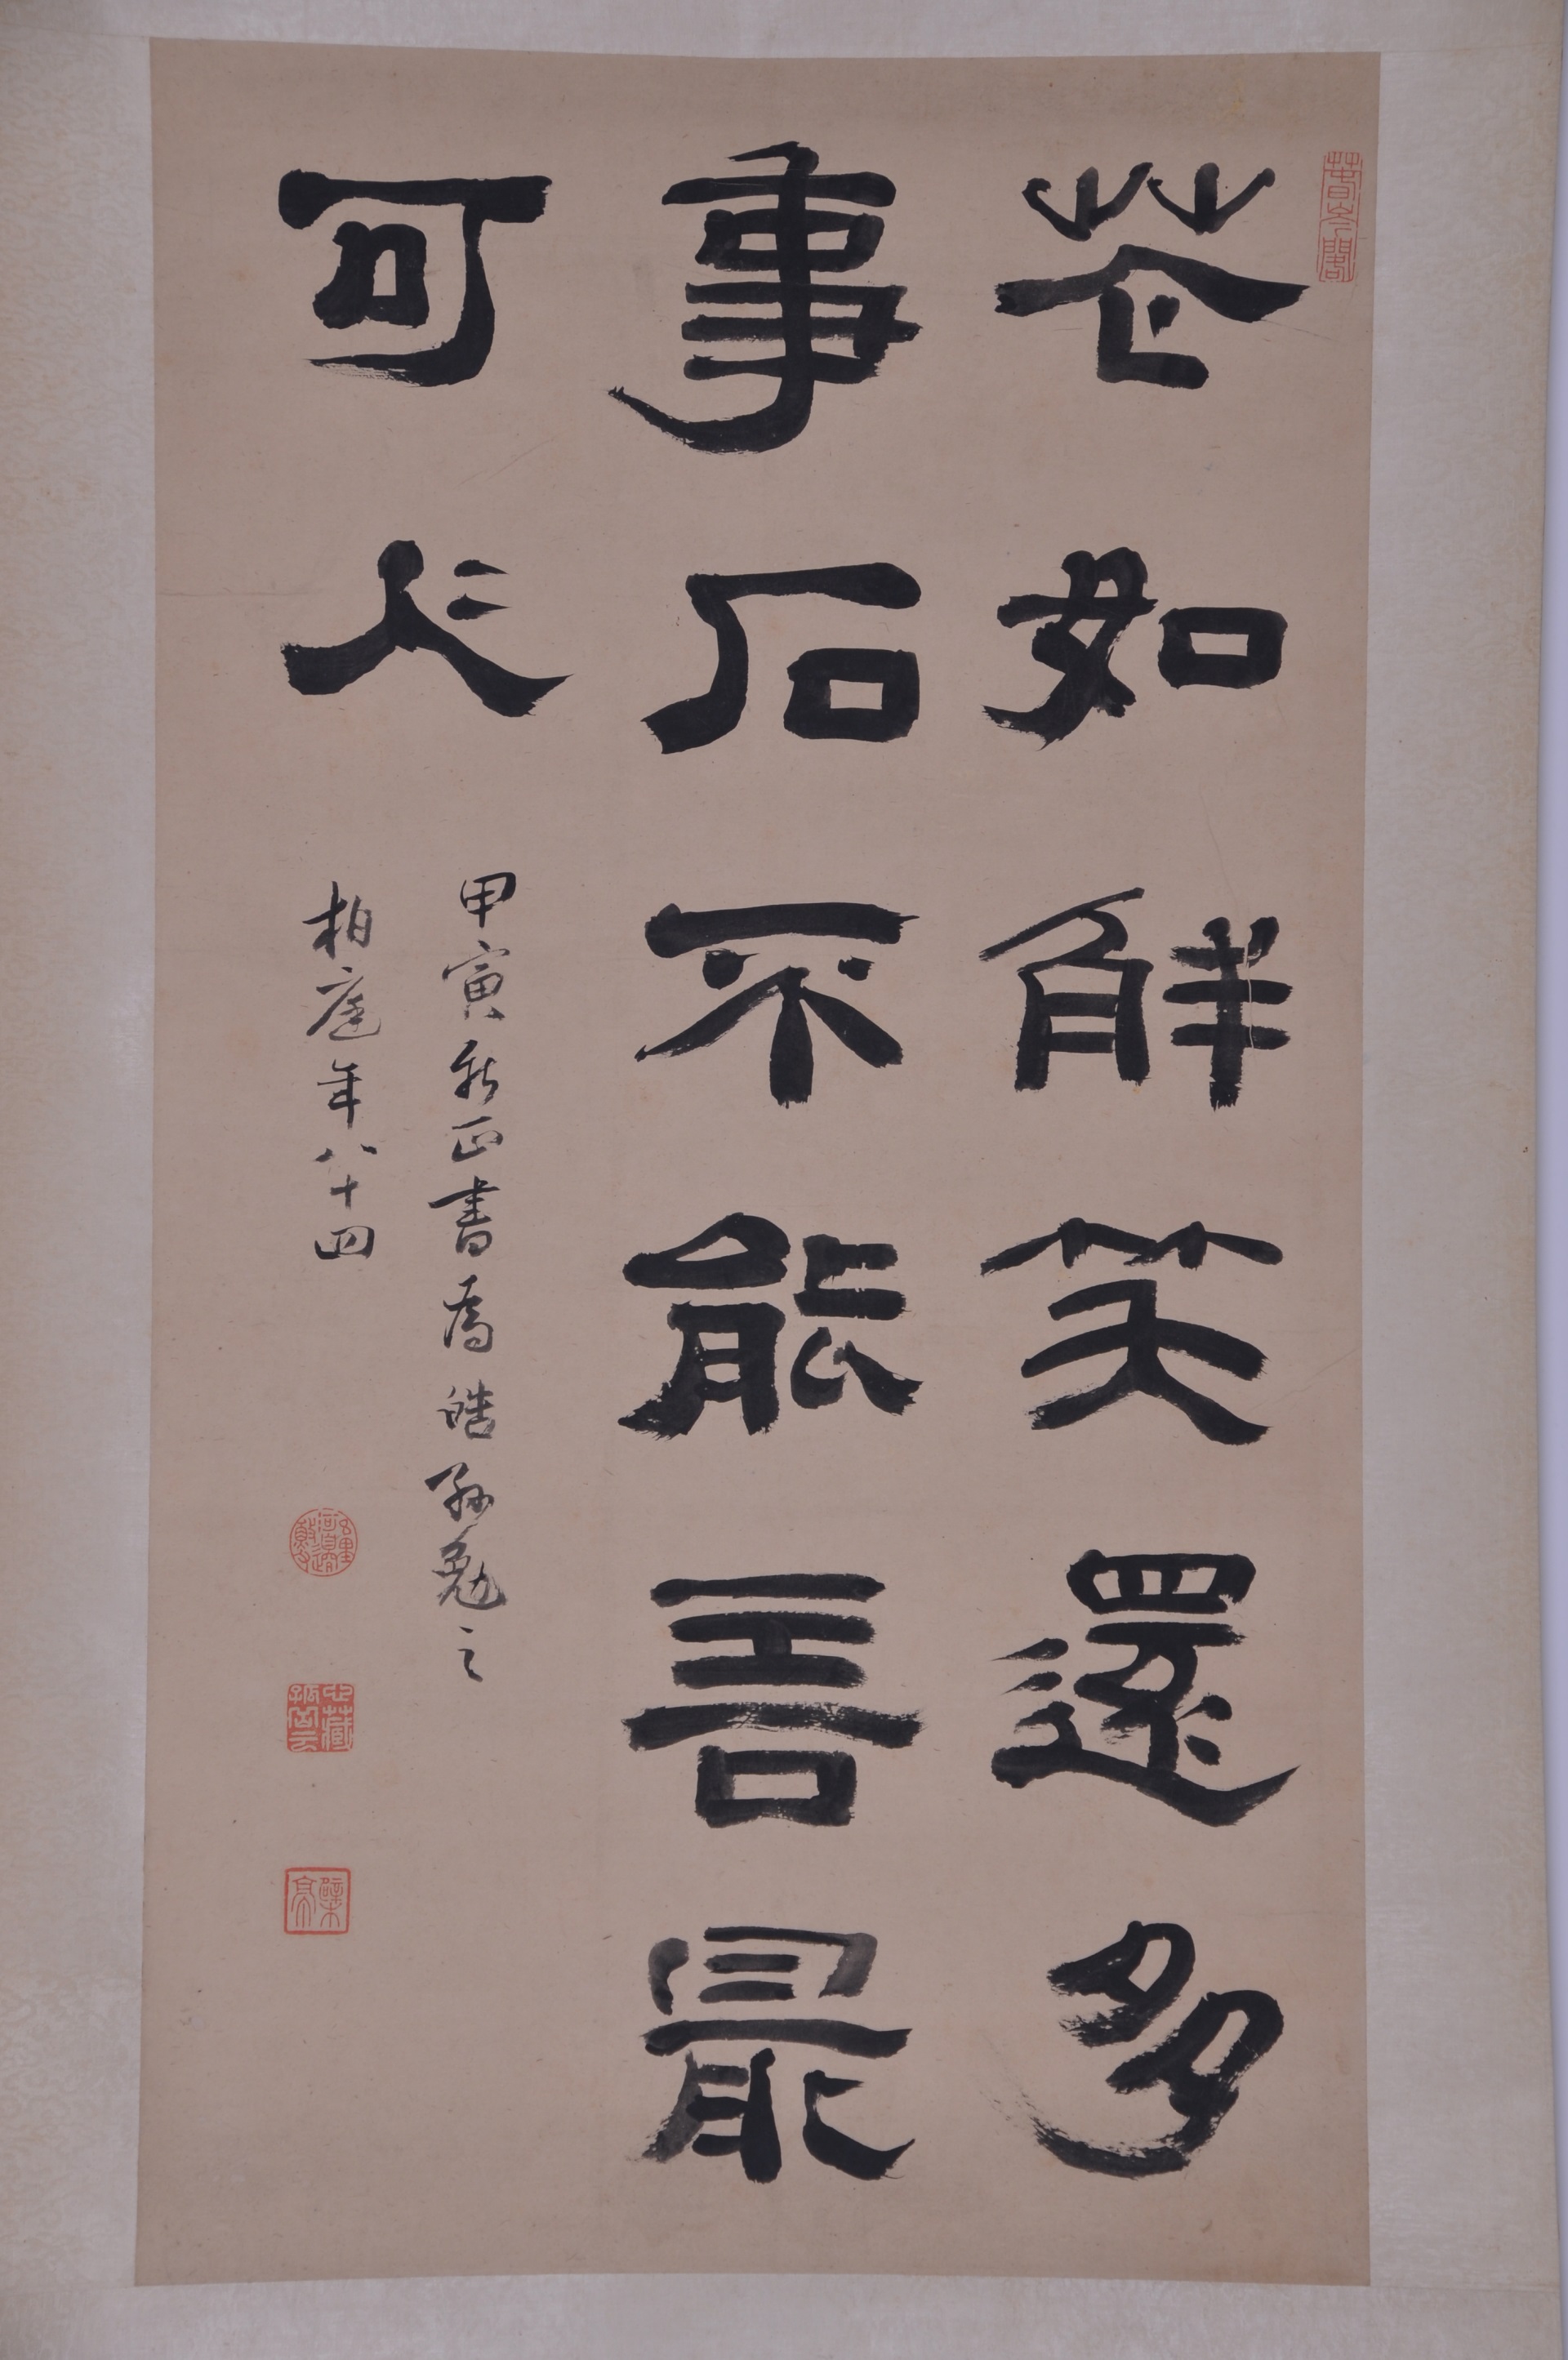 花如解笑還多
事石不能言最
可人
甲寅新正書為皓孫勉之
柏庭年八十四